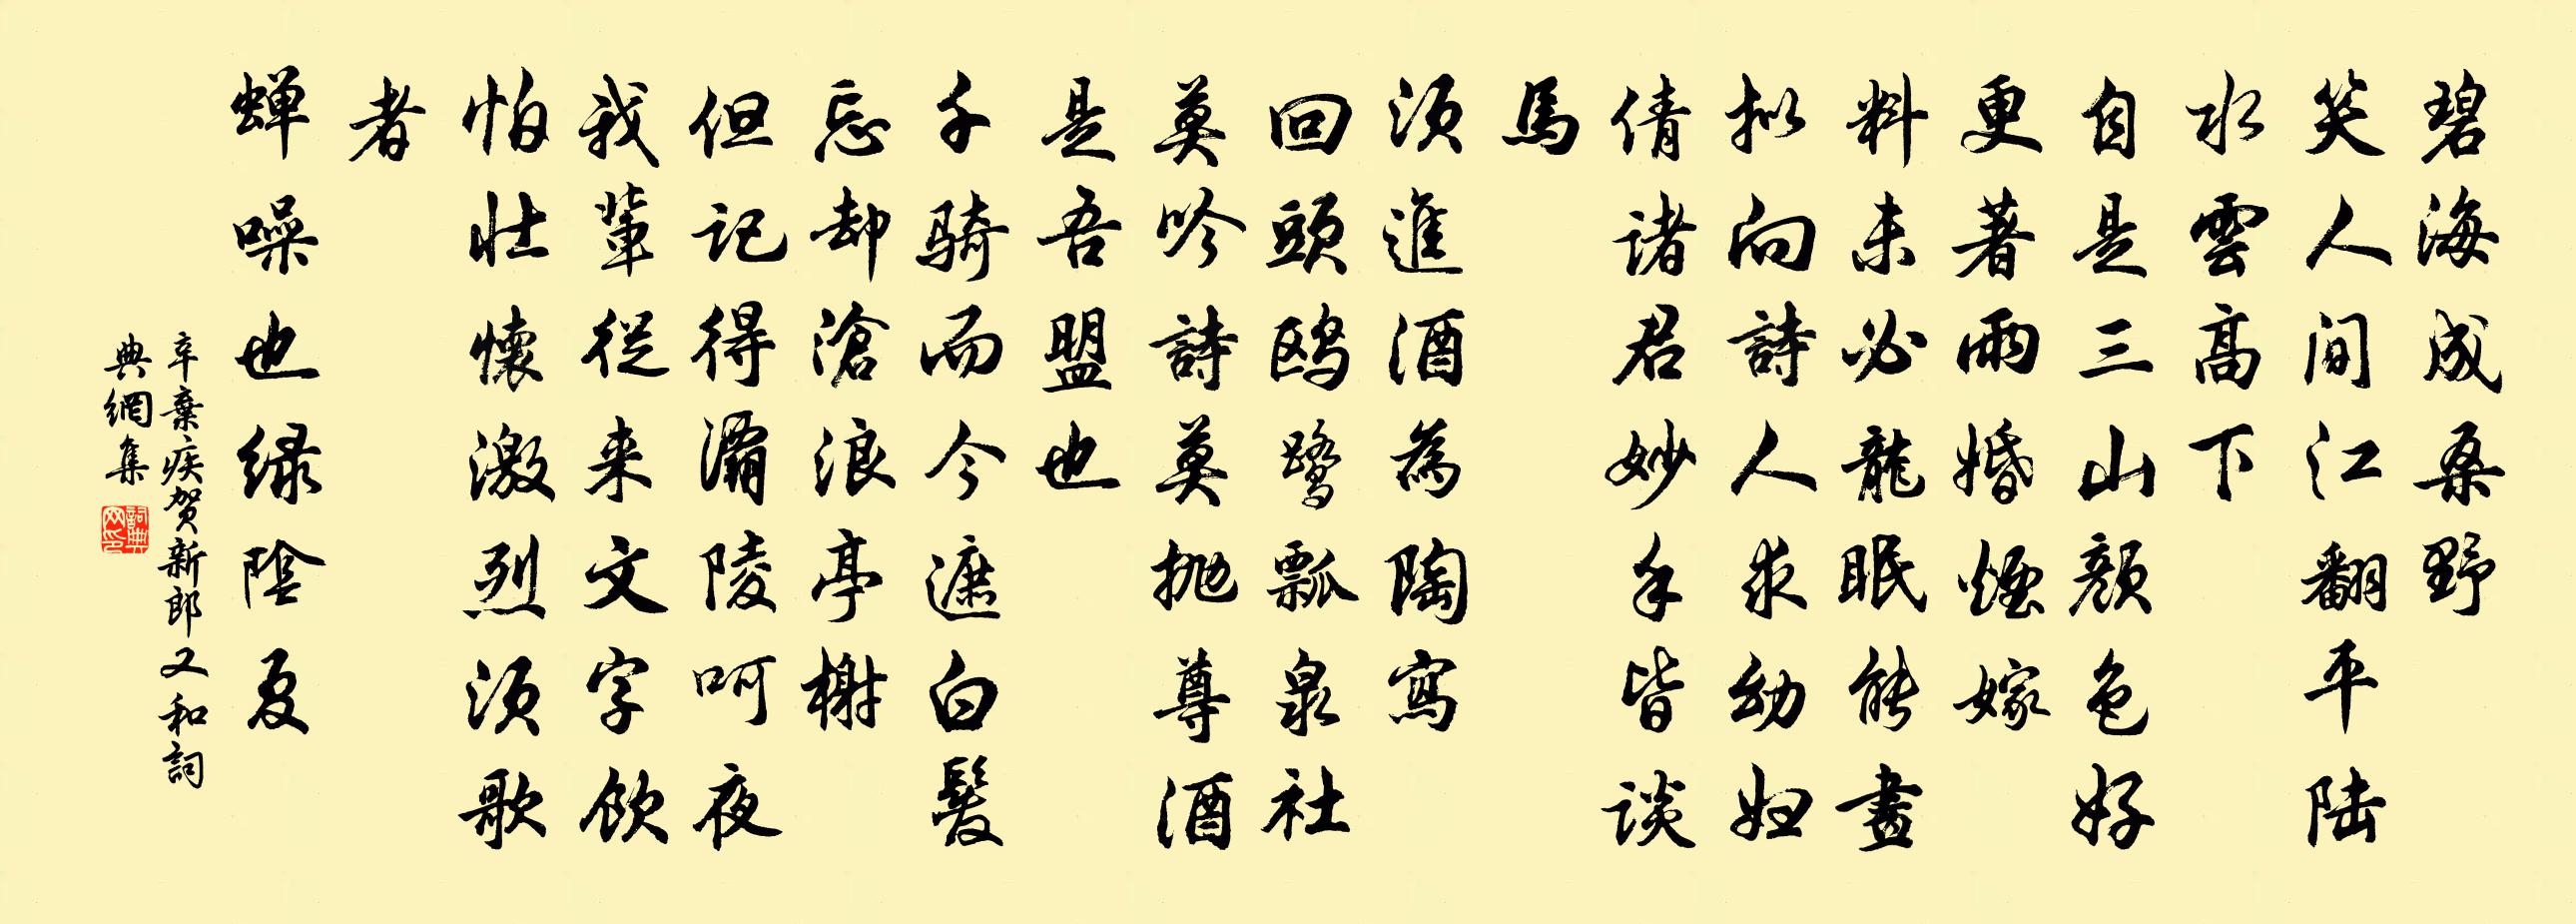 碧海成桑野
笑人间江翻平陆
水雲高下
自是三山颜色好
更著雨婚煙嫁
料未必龍眠能畫
拟向詩人求幼妇
倩诸君妙手皆谈
馬
须進酒為陶寫
回頭鸥鹭瓢泉社
莫吟詩莫抛尊酒
是吾盟也
千骑而今遮白髮
忘却滄浪亭榭
但记得灞陵呵夜
我輩從来文字饮
怕壮懷激烈须歌
者
蝉噪也绿陰夏
辛棄疾贺新郎又和詞
典網集
詞典网印